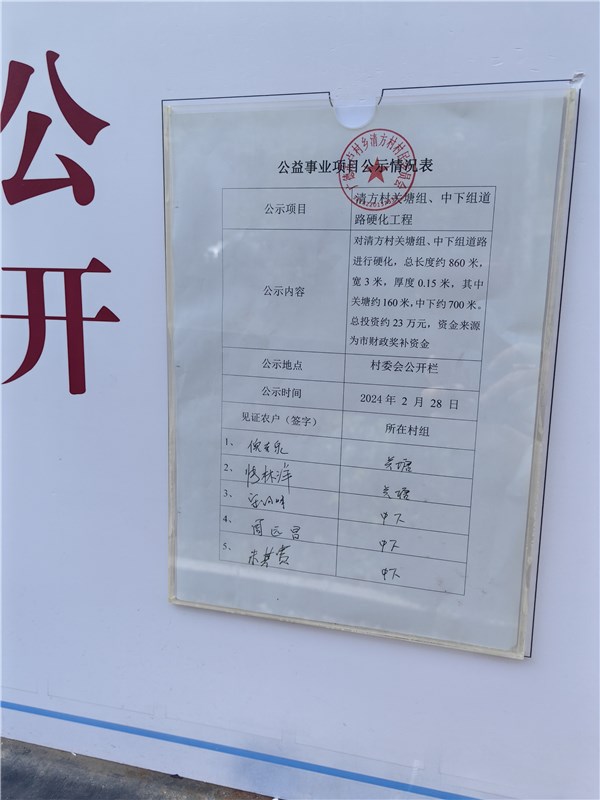 公
开
公益事业项目公示情况表
公示项目
清方村关塘组、中下组道
路硬化工程
公示内容
对清方村关塘组、中下组道路
进行硬化，总长度约 860 米，
宽 3 米，厚度 0.15 米，其中
关塘约 160 米，中下约 700 米。
总投资约 23 万元，资金来源
为市财政奖补资金
公示地点
村委会公开栏
公示时间
2024 年 2 月 28 日
见证农户（签字）
所在村组
1、
关塘
2、
关塘
3、
中下
4、
中下
5、
中下